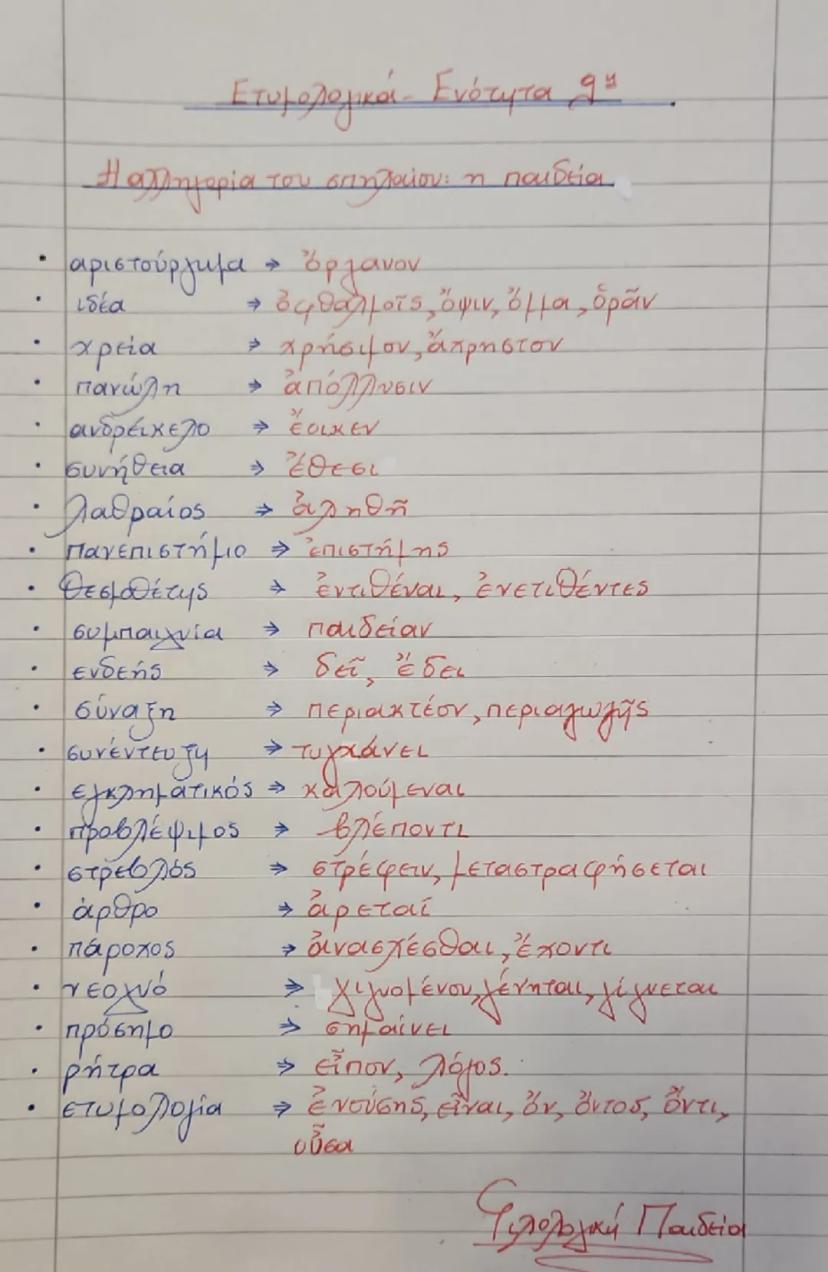 Ετυμολογικά - Ενότητα 9η.
Η αλληγορία του σπηλαίου: η παιδεία
• αριστούργημα ⇒ ὄργανον
• ιδέα ⇒ ὀφθαλμοῖς, ὄψιν, ὄμμα, ὁρᾶν
• χρεία ⇒ χρήσιμον, ἄχρηστον
• πανώλη ⇒ ἀπόλλυσιν
• ανδρείκελο ⇒ ἔοικεν
• συνήθεια ⇒ ἔθεσι
• λαθραίος ⇒ ἀληθῆ
• πανεπιστήμιο ⇒ ἐπιστήμης
• θεσμοθέτης ⇒ ἐντιθέναι, ἐνετιθέντες
• συμπαιγνία ⇒ παιδείαν
• ενδεής ⇒ δεῖ, ἔδει
• σύναξη ⇒ περιακτέον, περιαγωγῆς
• συνέντευξη ⇒ τυγχάνει
• εγκληματικός ⇒ καλούμεναι
• προβλέψιμος ⇒ βλέποντι
• στρεβλός ⇒ στρέφειν, μεταστραφήσεται
• άρθρο ⇒ ἀρεταῖ
• πάροχος ⇒ ἀνασχέσθαι, ἔχοντι
• νεογνό ⇒ γιγνομένου, γένηται, γίγνεται
• πρόσημο ⇒ σημαίνει
• ρήτρα ⇒ εἶπον, λόγος.
• ετυμολογία ⇒ ἐνούσης, εἶναι, ὄν, ὄντος, ὄντι,
οὖσα
Φιλολογική Παιδεία